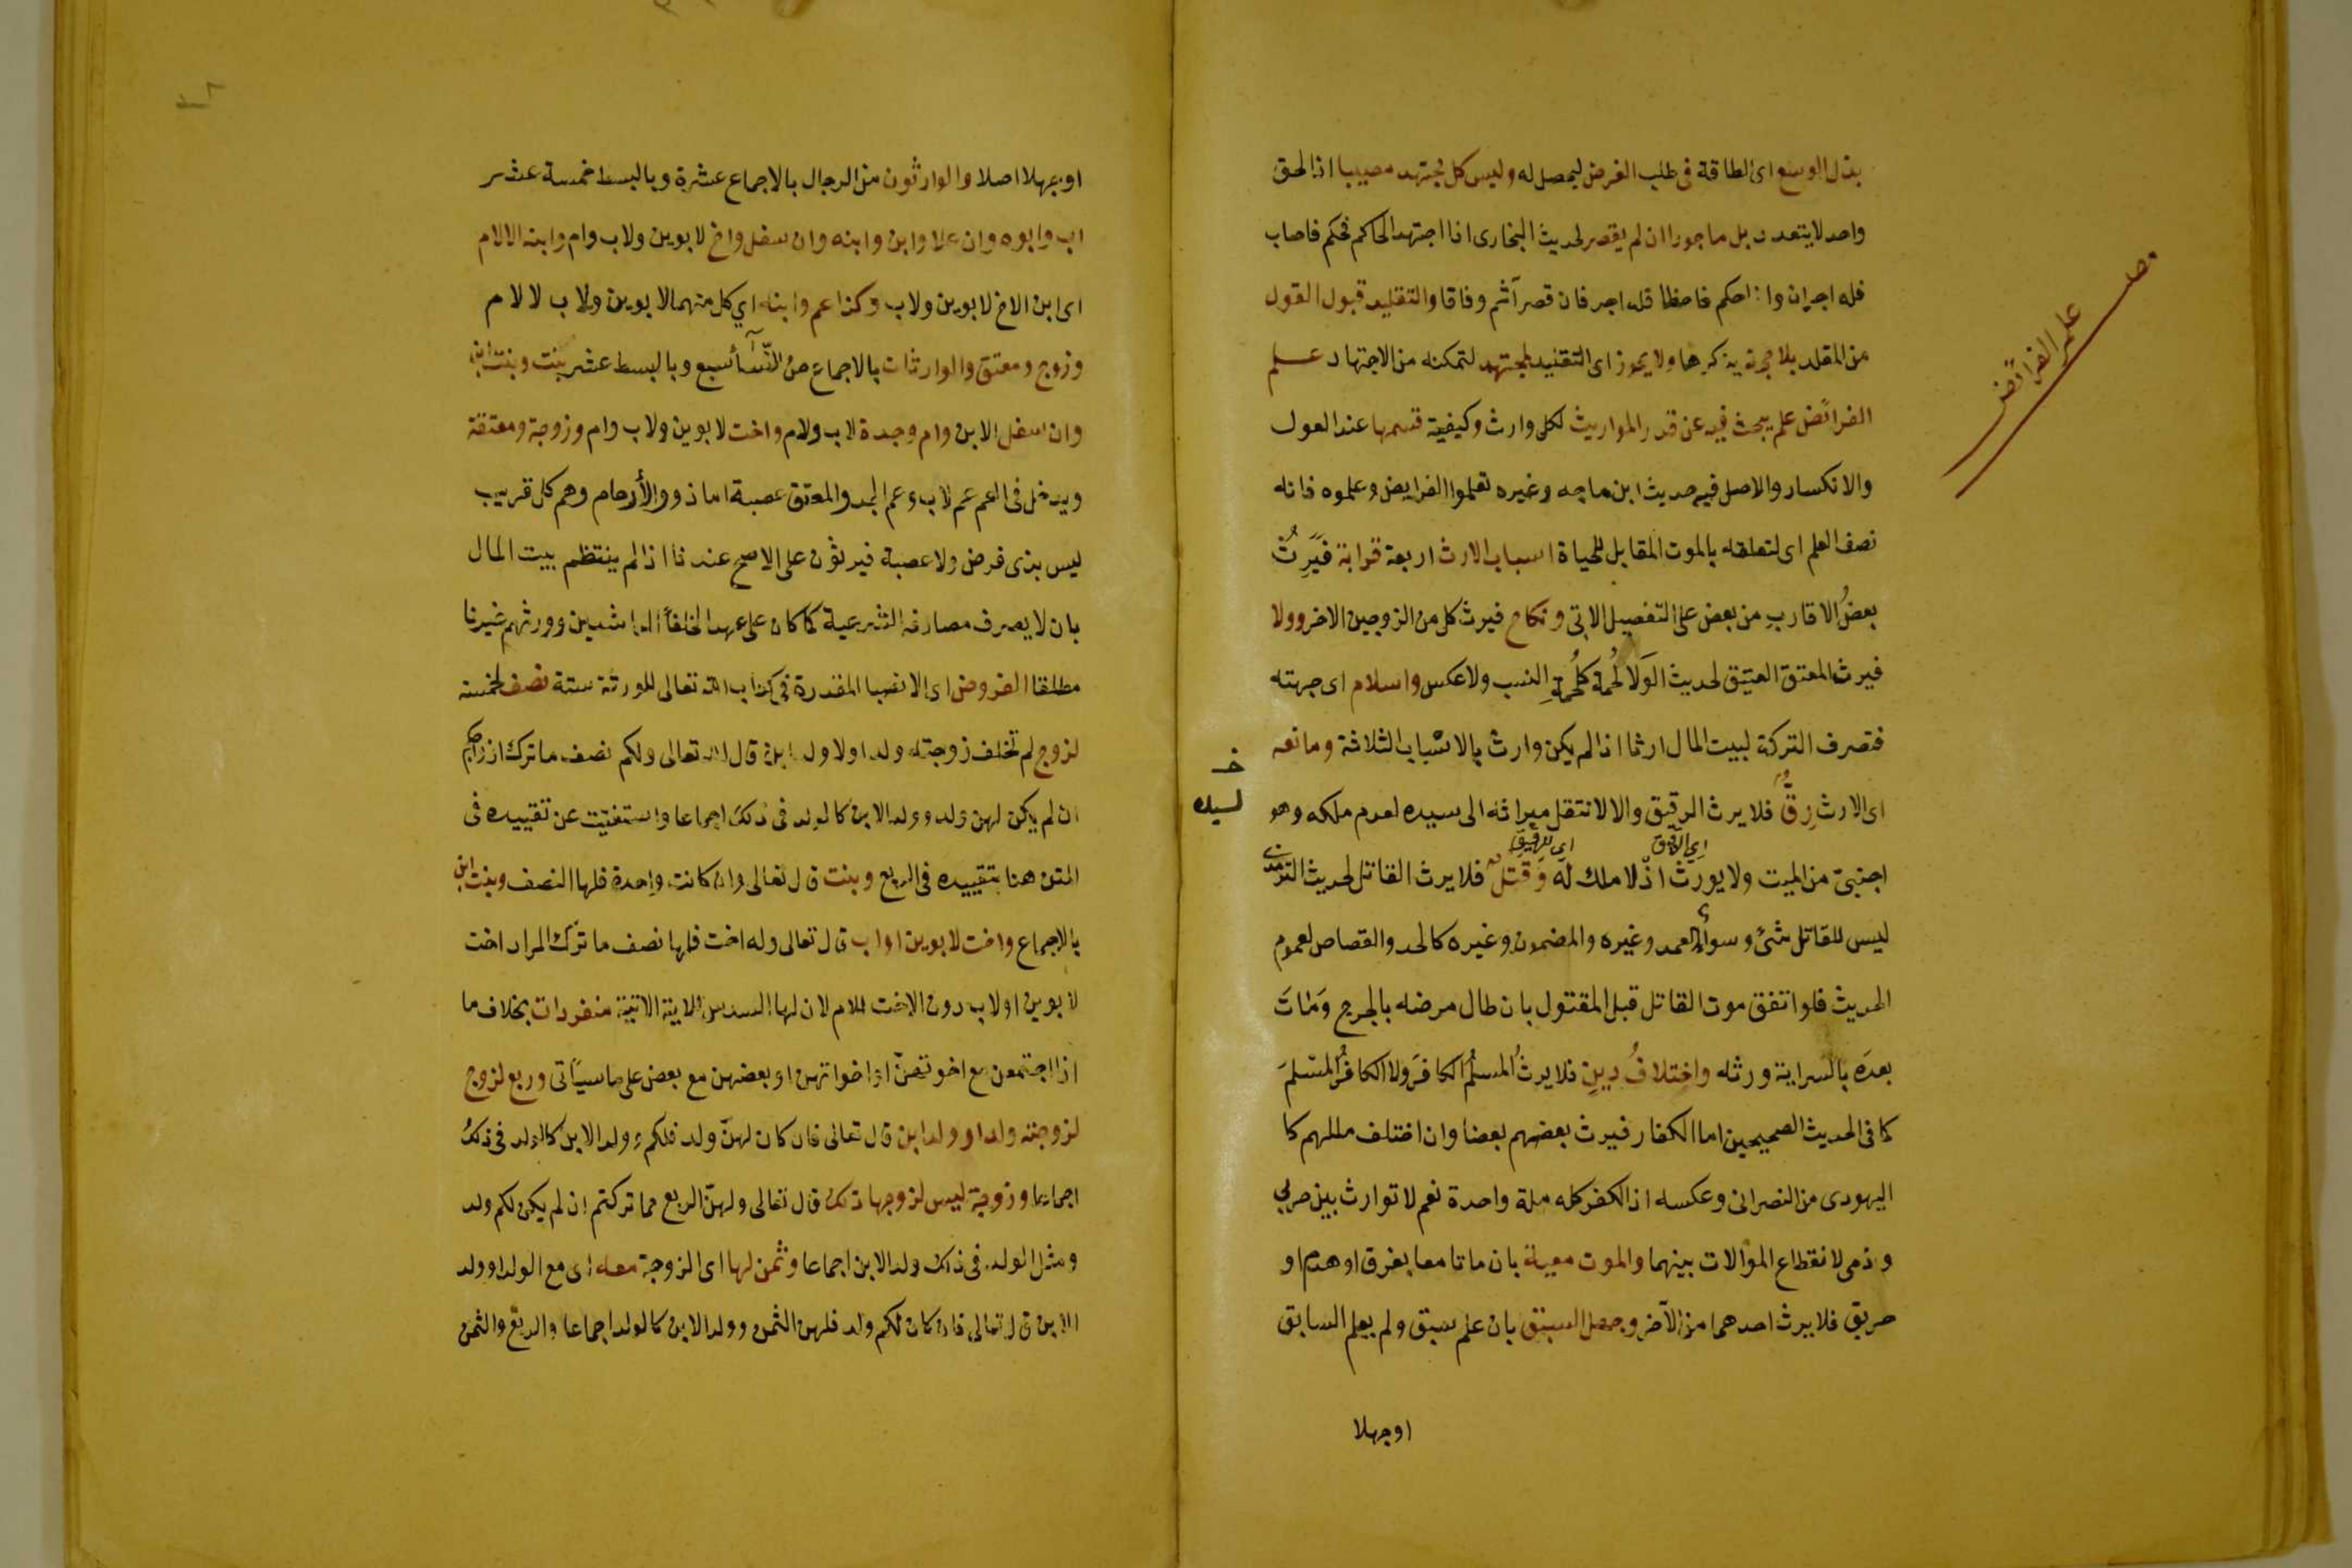 بذل الوسع اى الطاقة فى طلب الغرض ليحصل له وليس كل مجتهد مصيبا اذ الحق
واحد لا يتعدد بل ماجورا ان لم يقصر لحديث البخارى اذا اجتهد الحاكم فحكم فاصاب
فله اجران واذا حكم فاخطا فله اجر فان قصر آثم وفاقا والتقليد قبول القول
من المقلد بلا حجة يذكرها ولا يجوز اى التقليد لمجتهد لتمكنه من الاجتهاد علم
الفرائض علم يبحث فيه عن قدر المواريث لكل وارث وكيفية قسمها عند العول
والانكسار والاصل فيه حديث ابن ماجه وغيره تعلموا الفرايض وعلموه فانه
نصف العلم اى لتعلقه بالموت المقابل للحياة اسباب الارث اربعة قرابة فيَرِثُ
بعضُ الاقارب من بعض على التفصيل الاتى ونكاح فيرث كل من الزوجين الاخر وولا
فيرث المعتق العتيق لحديث الوَلا لُحمة كلُحمةِ النسب ولا عكس واسلام اى جهته
فتصرف التركة لبيت المال ارثا اذا لم يكن وارث بالاسباب الثلاثة ومانعه
اى الارث رِقٌّ فلا يرث الرقيق والا لانتقل ميراثه الى سيده لعدم ملكه وهو
اى الرقيق اى للرقيق
اجنبىّ من الميت ولا يورث اذ لا ملك له وَقتلٌ فلا يرث القاتل لحديث الترمذى
ليس للقاتل شئ وسوأ العمد وغيره والمضمون وغيره كالحد والقصاص لعموم
الحديث فلو اتفق موت القاتل قبل المقتول بان طال مرضه بالجرح وَمَاتَ
بعدَه بالسراية ورثه واختلافُ دينٍ فلا يرثُ المسلمُ الكافرَ ولا الكافرُ المسلمَ
كما فى الحديث الصحيحين اما الكفار فيرث بعضهم بعضا وان اختلف مللهم كا
اليهودى من النصرانى وعكسه اذ الكفر كله ملة واحدة نعم لا توارث بين حربي
وذمى لانقطاع الموالات بينهما والموت معية بان ماتا معا بغرق او هدم او
حريق فلا يرث احدهما من الآخر وجهل السبق بان علم سبق ولم يعلم السابق
اوجهلا
علم الفرائض
لسيده
او جهلا اصلا والوارثون من الرجال بالاجماع عشرة وبالبسط خمسة عشر
اب وابوه وان علا وابن وابنه وان سفل واخ لابوين ولاب وام وابنه الا لام
اى ابن الاخ لابوين ولاب وكذا عم وابنه اي كل منهما لابوين ولاب لا لام
وزوج ومعتق والوارثات بالاجماع من النسأ سبع وبالبسط عشر بنت وبنت ابن
وان سفل الابن وام وجدة لاب ولام واخت لابوين ولاب وام وزوجة ومعتقة
ويدخل فى العم عم لاب وعم الجد والمعتق عصبة اما ذوو الأرحام وهم كل قريب
ليس بذى فرض ولا عصبة فيرثون على الاصح عندنا اذا لم ينتظم بيت المال
بان لا يصرف مصارفه الشرعية كما كان على عهد الخلفأ الراشدين وورثهم غيرنا
مطلقا الفروض اى الانصبا المقدرة فى كتاب الله تعالى للورثة ستة نصف لخمسة
لزوج لم تخلف زوجته ولدا ولا ولد ابن قال الله تعالى ولكم نصف ما ترك ازواجكم
ان لم يكن لهن ولد وولد الابن كالولد فى ذلك اجماعا واستغنيت عن تقييده فى
المتن هنا بتقييده فى الربع وبنت قال تعالى وان كانت واحدة فلها النصف وبنت ابن
بالاجماع واخت لابوين او اب قال تعالى وله اخت فلها نصف ما ترك المراد اخت
لابوين او لاب دون الاخت للام لان لها السدس للاية الاتية منفردات بخلاف ما
اذا اجتمعن مع اخوتهنّ او اخواتهن او بعضهن مع بعض على ما سيأتى وربع لزوج
لزوجته ولد او ولد ابن قال تعالى فان كان لهنّ ولد فلكم وولد الابن كالولد فى ذلك
اجماعا وزوجة ليس لزوجها ذلك قال تعالى ولهنّ الربع مما تركتم ان لم يكن لكم ولد
ومثل الولد فى ذلك ولد الابن اجماعا وثمن لها اى الزوجة معه اى مع الولد او ولد
الابن قال تعالى فان كان لكم ولد فلهن الثمن وولد الابن كالولد اجماعا والربع والثمن